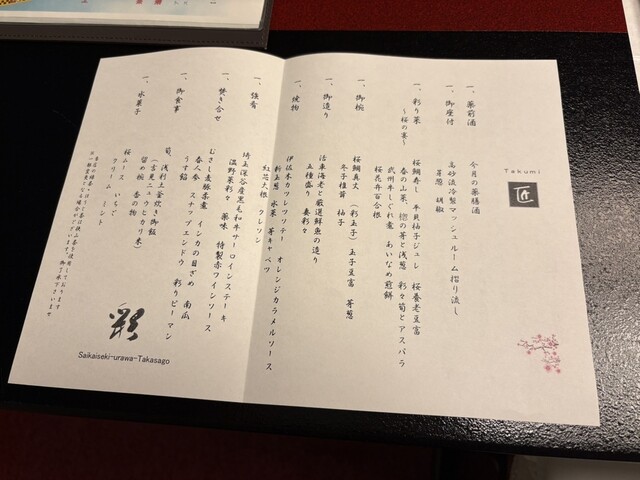 Takumi
匠
一、薬前酒
今月の薬膳酒
一、御座付
高砂流冷製マッシュルーム摺り流し
芽葱 胡椒
一、彩り菜
～桜の宴～
桜鯛寿し 平貝柚子ジュレ 桜養老豆富
春の山菜、筍と浅葱 彩々筍とアスパラ
武州牛しぐれ煮 あいなめ煎餅
桜花弁百合根
一、御椀
桜鯛真丈 (彩玉子)玉子豆富 芽葱
冬子椎茸 柚子
一、御造り
活車海老と厳選鮮魚の造り
五種盛り 妻彩々
一、焼物
伊佐木カツレツソテー オレンジカラメルソース
新玉葱 水菜 芽キャベツ
紅芯大根 クレソン
一、強肴
埼玉深谷産黒毛和牛サーロインステーキ
温野菜彩々 薬味 特製赤ワインソース
一、焚き合せ
むさし麦豚柔煮 インカの目ざめ 南瓜
春人参 スナップエンドウ 彩りピーマン
うす餡
一、御食事
筍、浅利土釜炊き御飯
(吉見ニュウヒカリ米)
留め椀 香の物
一、水菓子
桜ムース いちご
クリーム ミント
彩
Saikaiseki-urawa-Takasago